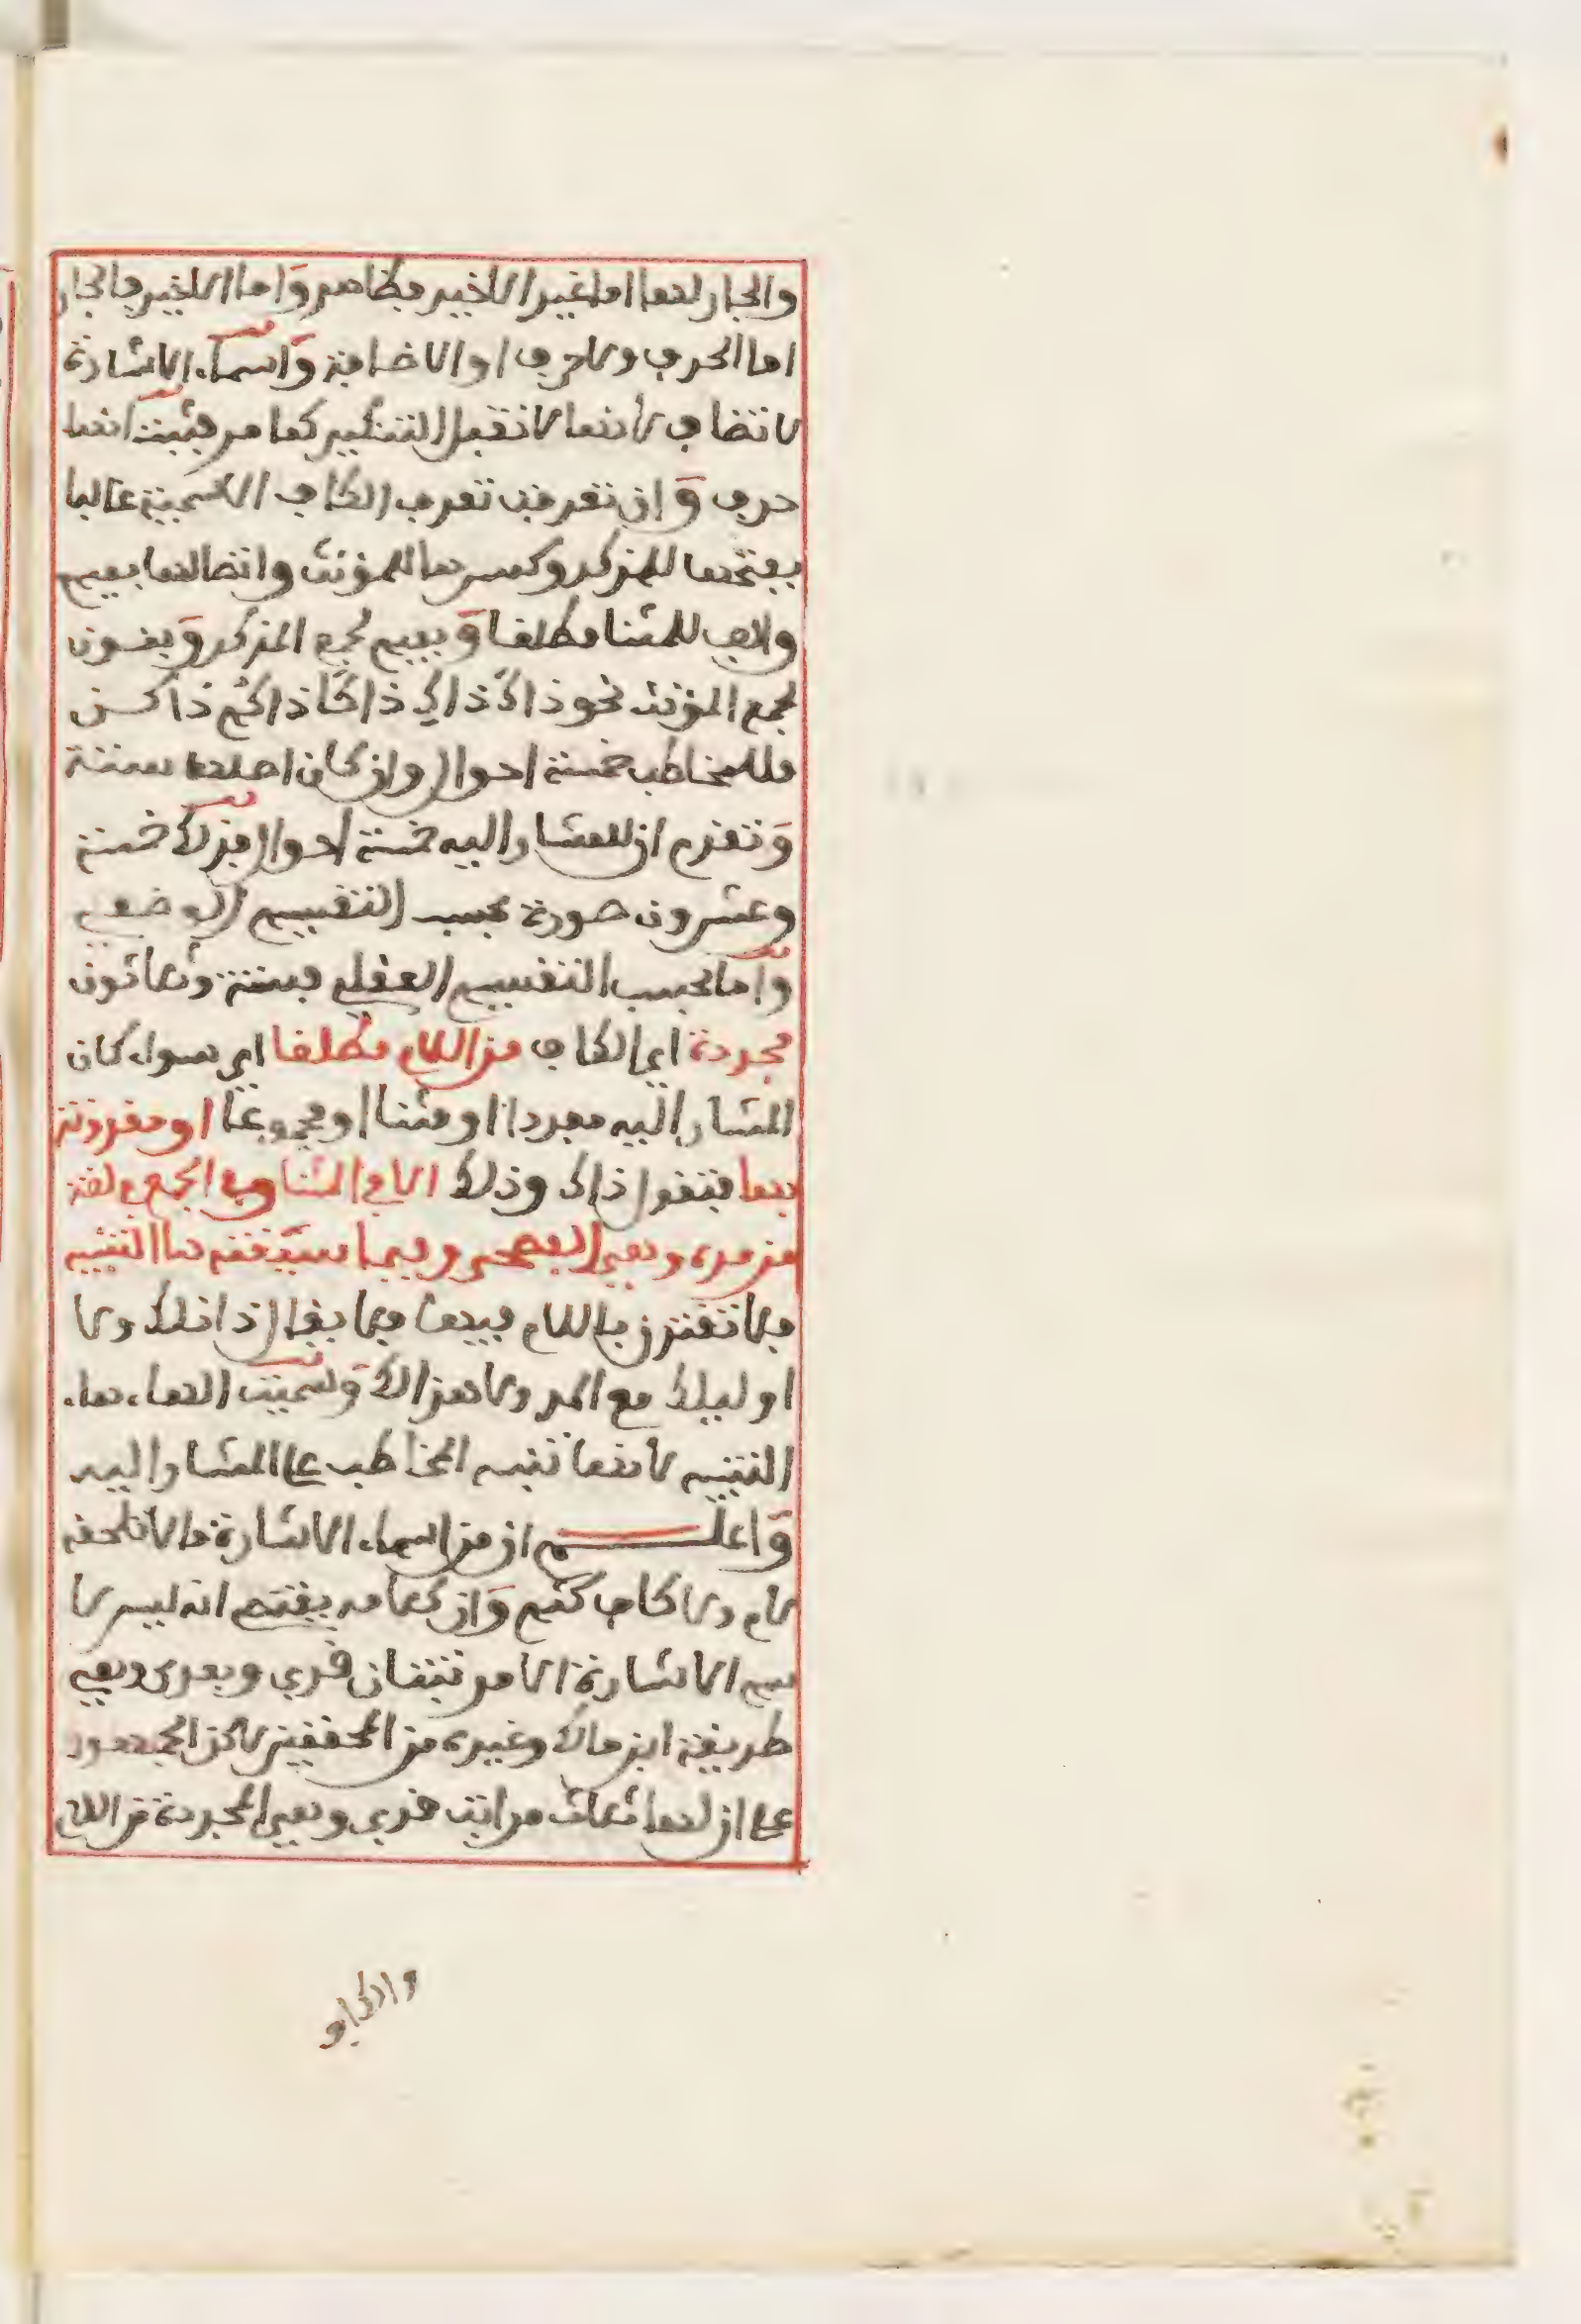 والجار لها اما غير الاخير فظاهر واما الاخير فالجار
اما الحرف ولا حرف او الاضافة واسماء الاشارة
لا تضاف لانها لا تقبل التنكير كما مر فثبت انها
حرف وان تصرفت تصرف الكاف الاسمية غالبا
بفتحها للمذكر وكسرها للمؤنث واتصالها بميم
والف للمثنا مطلقا وبميم لجمع المذكر وبنون
لجمع المؤنث نحو ذاكَ ذاكِ ذاكما ذاكم ذاكن
فللمخاطب خمسة احوال وان كان اصلها ستة
وتقدم ان للمشار اليه خمسة احوال فذلك خمسة
وعشرون صورة بحسب التقسيم الوضعي
واما بحسب التقسيم العقلي فستة وثلاثون
مجردة اي الكاف من اللام مطلقا اي سواء كان
المشار اليه مفردا او مثنا او مجموعا او مقرونة
بها فتقول ذاك وذلك الا في المثنا وفي الجمع في لغة
من مده وهي الفصحى وفيما سبقته ها التنبيه
فلا تقترن باللام فيهما فلا يقال ذانلك ولا
اوليلك مع المد ولا هذالك وسميت الهاء هاء
التنبيه لانها تنبه المخاطب على المشار اليه
واعلم ان من اسماء الاشارة ما لا تلحقه
لام ولا كاف كثم وان كلامه يقتضي انه ليس لا
سم الاشارة الا مرتبتان قربى وبعدى وهي
طريقة ابن مالك وغيره من المحققين لاكن الجمهور
على ان لها ثلاث مراتب قربى وهي المجردة من اللام
والكاف